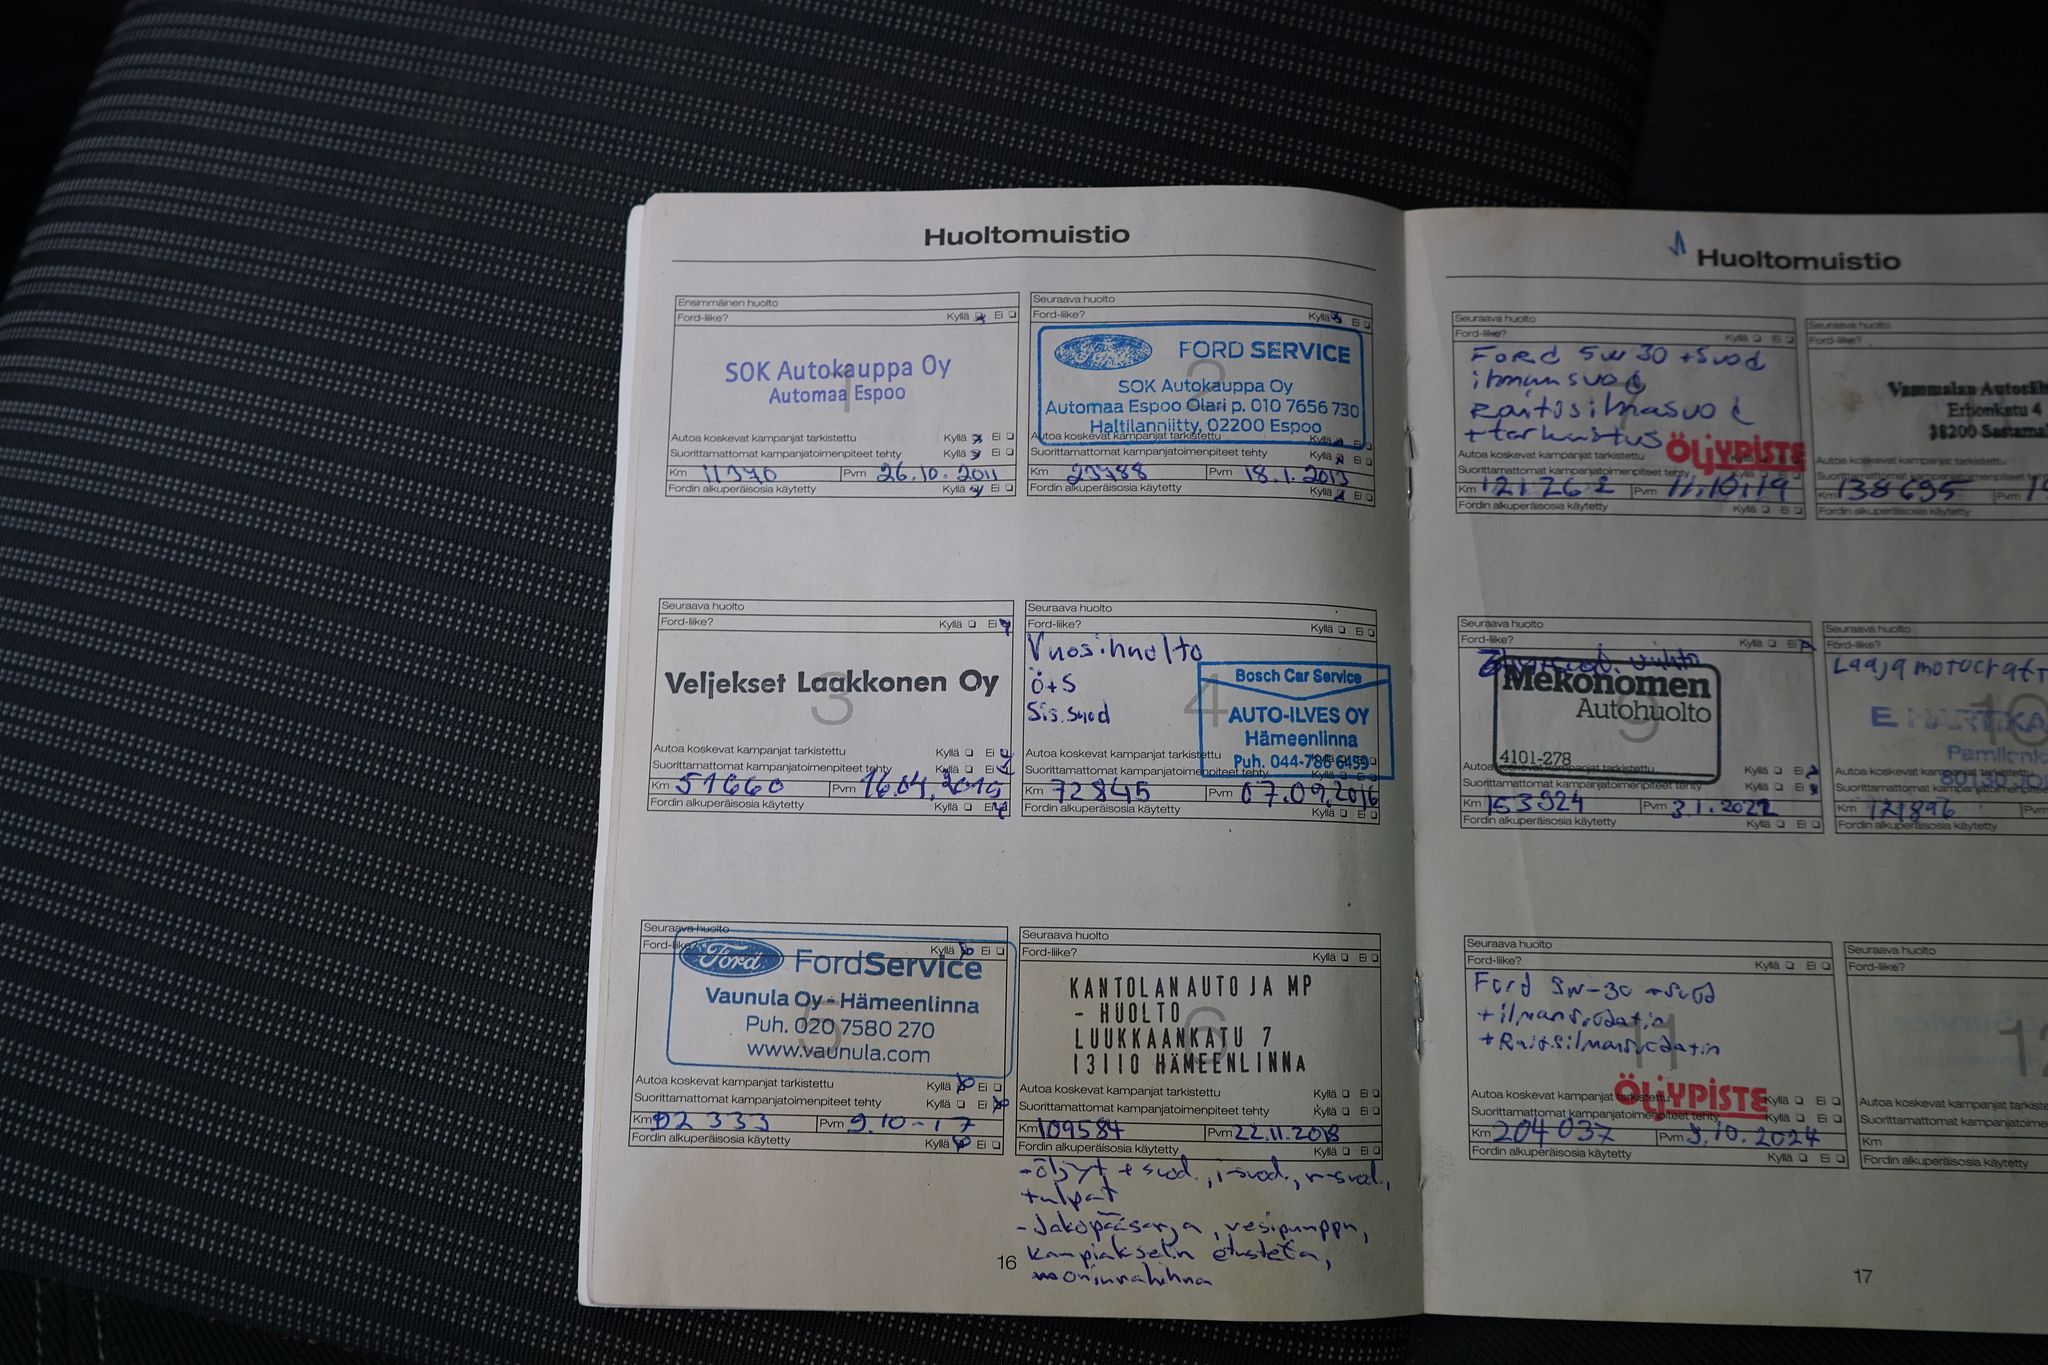 Huoltomuistio
Ensimmäinen huolto
Ford-liike? Kyllä Ei
SOK Autokauppa Oy
Automaa Espoo
1
Autoa koskevat kampanjat tarkistettu Kyllä Ei
Suorittamattomat kampanjatoimenpiteet tehty Kyllä Ei
Km 11370 Pvm 26.10.2011
Fordin alkuperäisosia käytetty Kyllä Ei
Seuraava huolto
Ford-liike? Kyllä Ei
Ford FORD SERVICE
2
SOK Autokauppa Oy
Automaa Espoo Olari p. 010 7656 730
Haltilanniitty, 02200 Espoo
Autoa koskevat kampanjat tarkistettu
Suorittamattomat kampanjatoimenpiteet tehty Kyllä Ei
Km 23788 Pvm 18.1.2013
Fordin alkuperäisosia käytetty Kyllä Ei
Seuraava huolto
Ford-liike? Kyllä Ei
Veljekset Laakkonen Oy
3
Autoa koskevat kampanjat tarkistettu Kyllä Ei
Suorittamattomat kampanjatoimenpiteet tehty Kyllä Ei
Km 51660 Pvm 16.04.2015
Fordin alkuperäisosia käytetty Kyllä Ei
Seuraava huolto
Ford-liike? Kyllä Ei
Vuosihuolto
ö+S
Sis.suod
4
Bosch Car Service
AUTO-ILVES OY
Hämeenlinna
Puh. 044-786 6459
Autoa koskevat kampanjat tarkistettu
Suorittamattomat kampanjatoimenpiteet tehty
Km 72845 Pvm 07.09.2016
Fordin alkuperäisosia käytetty Kyllä Ei
Seuraava huolto
Ford-liike? Kyllä Ei
Ford FordService
Vaunula Oy - Hämeenlinna
5
Puh. 020 7580 270
www.vaunula.com
Autoa koskevat kampanjat tarkistettu Kyllä Ei
Suorittamattomat kampanjatoimenpiteet tehty Kyllä Ei
Km 92 333 Pvm 9.10-17
Fordin alkuperäisosia käytetty Kyllä Ei
Seuraava huolto
Ford-liike? Kyllä Ei
KANTOLAN AUTO JA MP
- HUOLTO
6
LUUKKAANKATU 7
13110 HÄMEENLINNA
Autoa koskevat kampanjat tarkistettu Kyllä Ei
Suorittamattomat kampanjatoimenpiteet tehty Kyllä Ei
Km 109584 Pvm 22.11.2018
Fordin alkuperäisosia käytetty Kyllä Ei
-öljyt + suod., i-suod., r-suod.,
tulpat
- Jakopääsarja, vesipumppu,
kampiakselin etusteta,
moniurahihna
16
Huoltomuistio
Seuraava huolto
Ford-liike? Kyllä Ei
Ford 5w30 +Suod
ilmansuod
Raitisilmasuod
+tarkastus
ÖLJYPISTE
Autoa koskevat kampanjat tarkistettu
Suorittamattomat kampanjatoimenpiteet tehty
Km 121262 Pvm 11.10.19
Fordin alkuperäisosia käytetty Kyllä Ei
Seuraava huolto
Ford-liike?
Vammalan AutosEh
Erhonkatu 4
38200 Sastamal
Autoa koskevat kampanjat tarkistettu
Suorittamattomat kampanjatoimenpiteet tehty
Km 138695 Pvm
Fordin alkuperäisosia käytetty
Seuraava huolto
Ford-liike? Kyllä Ei
vaihto
Mekonomen
Autohuolto
9
4101-278
Autoa koskevat kampanjat tarkistettu Kyllä Ei
Suorittamattomat kampanjatoimenpiteet tehty Kyllä Ei
Km 153924 Pvm 3.1.2022
Fordin alkuperäisosia käytetty Kyllä Ei
Seuraava huolto
Ford-liike?
Laaja
10
Autoa koskevat kampanjat tarkistettu
Suorittamattomat kampanjatoimenpiteet tehty
Km Pvm
Fordin alkuperäisosia käytetty
Seuraava huolto
Ford-liike? Kyllä Ei
Ford 5w-30 +Suod
+ilmansuodatin
+Raitisilmansuodatin
11
ÖLJYPISTE
Autoa koskevat kampanjat tarkistettu Kyllä Ei
Suorittamattomat kampanjatoimenpiteet tehty Kyllä Ei
Km 204037 Pvm 9.10.2024
Fordin alkuperäisosia käytetty Kyllä Ei
Seuraava huolto
Ford-liike?
12
Autoa koskevat kampanjat tarkistettu
Suorittamattomat kampanjatoimenpiteet
Km
Fordin alkuperäisosia käytetty
17